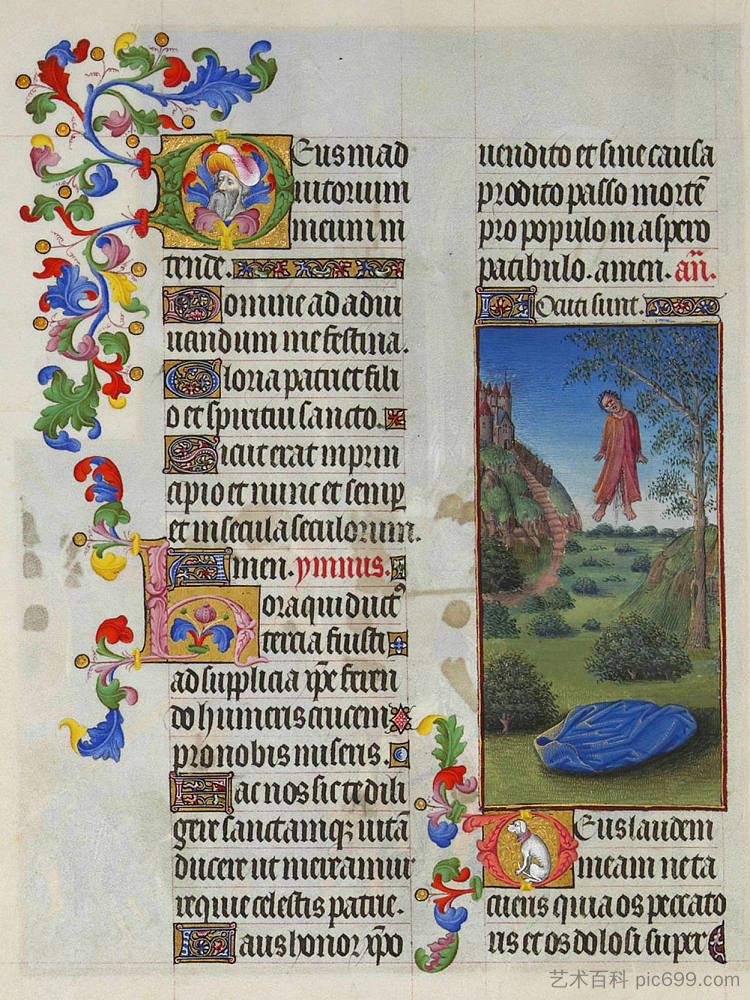 Deus in ad
iutorium
meum in
tende.
Domine ad adiu
uandum me festina.
Gloria patri et fili
o et spiritui sancto.
Sicut erat in prin
cipio et nunc et semp
et in secula seculorum.
Amen. ymnus.
Hora qui duct9
tercia fuisti
ad supplicia xp̄e feren
do humeris crucem
pro nobis miseris.
Fac nos sic te dili
gere sanctamqꝫ uitā
ducere ut mereamur
requie celestis patrie.
Laus honor xp̄o
uendito et sine causa
prodito passo mortē
pro populo in aspero
patibulo. amen. añ.
Locuti sunt.
Deus laudem
meam ne ta
cueris quia os peccato
ris et os dolosi super
艺术百科 pic699.com